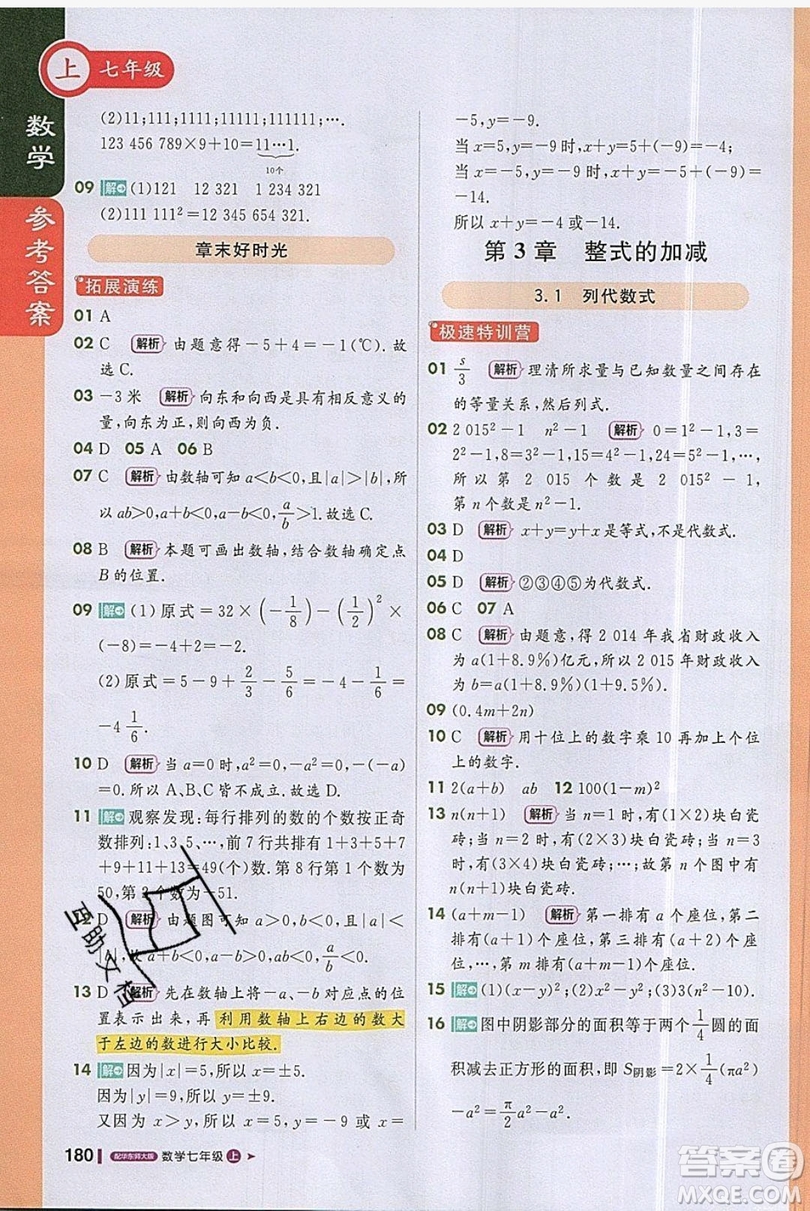 上 七年级
数学
参考答案
(2)11;111;1111;11111;111111;….
123 456 789×9+10=11…1.
10个
09 解 (1)121 12 321 1 234 321
(2)111 111²=12 345 654 321
章末好时光
拓展演练
01 A
02 C 解析 由题意得-5+4=-1(℃).故
选C.
03 -3米 解析 向东和向西是具有相反意义的
量,向东为正,则向西为负.
04 D 05 A 06 B
07 C 解析 由数轴可知a<b<0,且|a|>|b|,所
以ab>0,a+b<0,a-b<0,a/b>1.故选C.
08 B 解析 本题可画出数轴,结合数轴确定点
B的位置.
09 解 (1)原式=32×(-1/8)-(1/2)²×
(-8)=-4+2=-2.
(2)原式=5-9+2/3-5/6=-4-1/6=
-4 1/6.
10 D 解析 当a=0时,a²=0,-a²=0,
(-a)²=0.故A、B、C皆不成立.故选D.
11 解 观察发现:每行排列的数的个数按正奇
数排列:1、3、5、…,前7行共排有1+3+5+7
+9+11+13=49(个)数.第8行第1个数为
50,第2个数为-51.
12 D 解析 由题图可知a>0,b<0,|a|>|b|
,故a+b>0,ab<0,a-b>0,a/b<0.
13 D 解析 先在数轴上将-a、-b对应点的位
置表示出来,再利用数轴上右边的数大
于左边的数进行大小比较.
14 解 因为|x|=5,所以x=±5.
因为|y|=9,所以y=±9.
又因为x>y,所以x=5,y=-9或x=
180 配华东师大版 数学七年级 上
-5,y=-9.
当x=5,y=-9时,x+y=5+(-9)=-4;
当x=-5,y=-9时,x+y=-5+(-9)=
-14.
所以x+y=-4或-14.
第3章 整式的加减
3.1 列代数式
极速特训营
01 s/3 解析 理清所求量与已知数量之间存在
的等量关系,然后列式.
02 2 015²-1 n²-1 解析 0=1²-1,3=
2²-1,8=3²-1,15=4²-1,24=5²-1,…,
所以第2 015个数是2 015²-1,
第n个数是n²-1.
03 D 解析 x+y=y+x是等式,不是代数式.
04 D
05 D 解析 ②③④⑤为代数式.
06 C 07 A
08 C 解析 由题意,得2 014年我省财政收入
为a(1+8.9%)亿元,所以2 015年财政收入
b=a(1+8.9%)(1+9.5%)亿元.
09 (0.4m+2n)
10 C 解析 用十位上的数字乘10再加上个位
上的数字.
11 2(a+b) ab 12 100(1-m)²
13 n(n+1) 解析 当n=1时,有(1×2)块白瓷
砖;当n=2时,有(2×3)块白瓷砖;当n=3
时,有(3×4)块白瓷砖;…;故第n个图中有
n(n+1)块白瓷砖.
14 (a+m-1) 解析 第一排有a个座位,第二
排有(a+1)个座位,第三排有(a+2)个座位,
第四排有(a+3)个座位,….
15 解 (1)(x-y)² (2)x²-y²
16 解 图中阴影部分的面积等于两个1/4圆的面
积减去正方形的面积,即S阴影=2×1/4(πa²)
-a²=π/2a²-a².
互助文档
答案圈
MXQE.COM